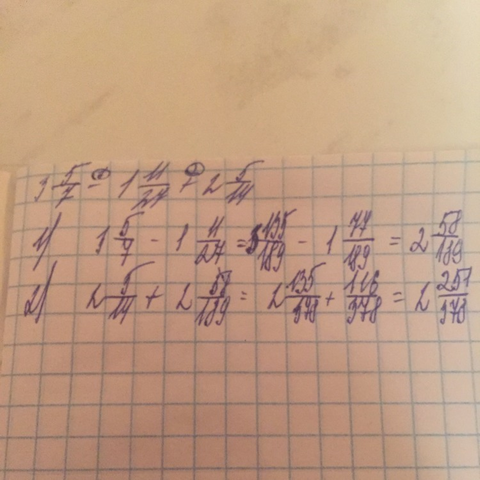 3 5/7 - 1 11/27 + 2 5/14
1) 3 5/7 - 1 11/27 = 3 135/189 - 1 77/189 = 2 58/189
2) 2 5/14 + 2 58/189 = 2 135/378 + 116/378 = 2 251/378